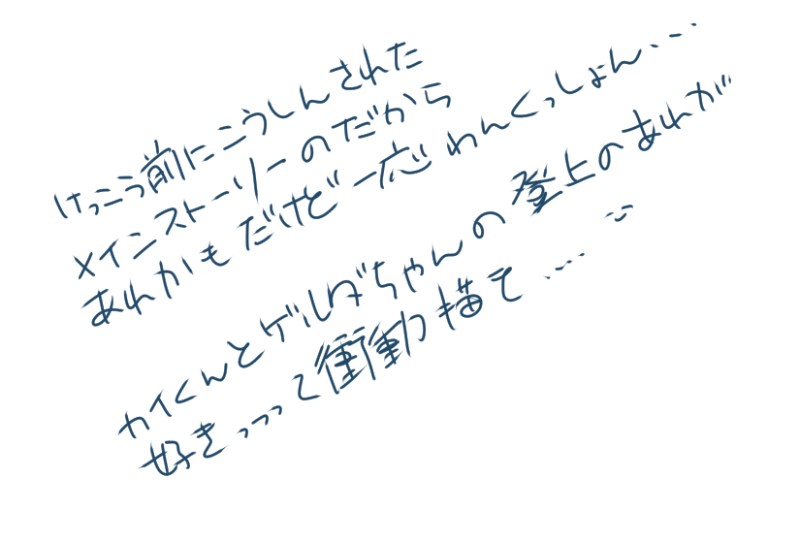 けっこう前にこうしんされた
メインストーリーのだから
あれかもだけど一応わんくっしょん...
カイくんとゲルダちゃんの登上のあれが
好きっっって衝動描き....